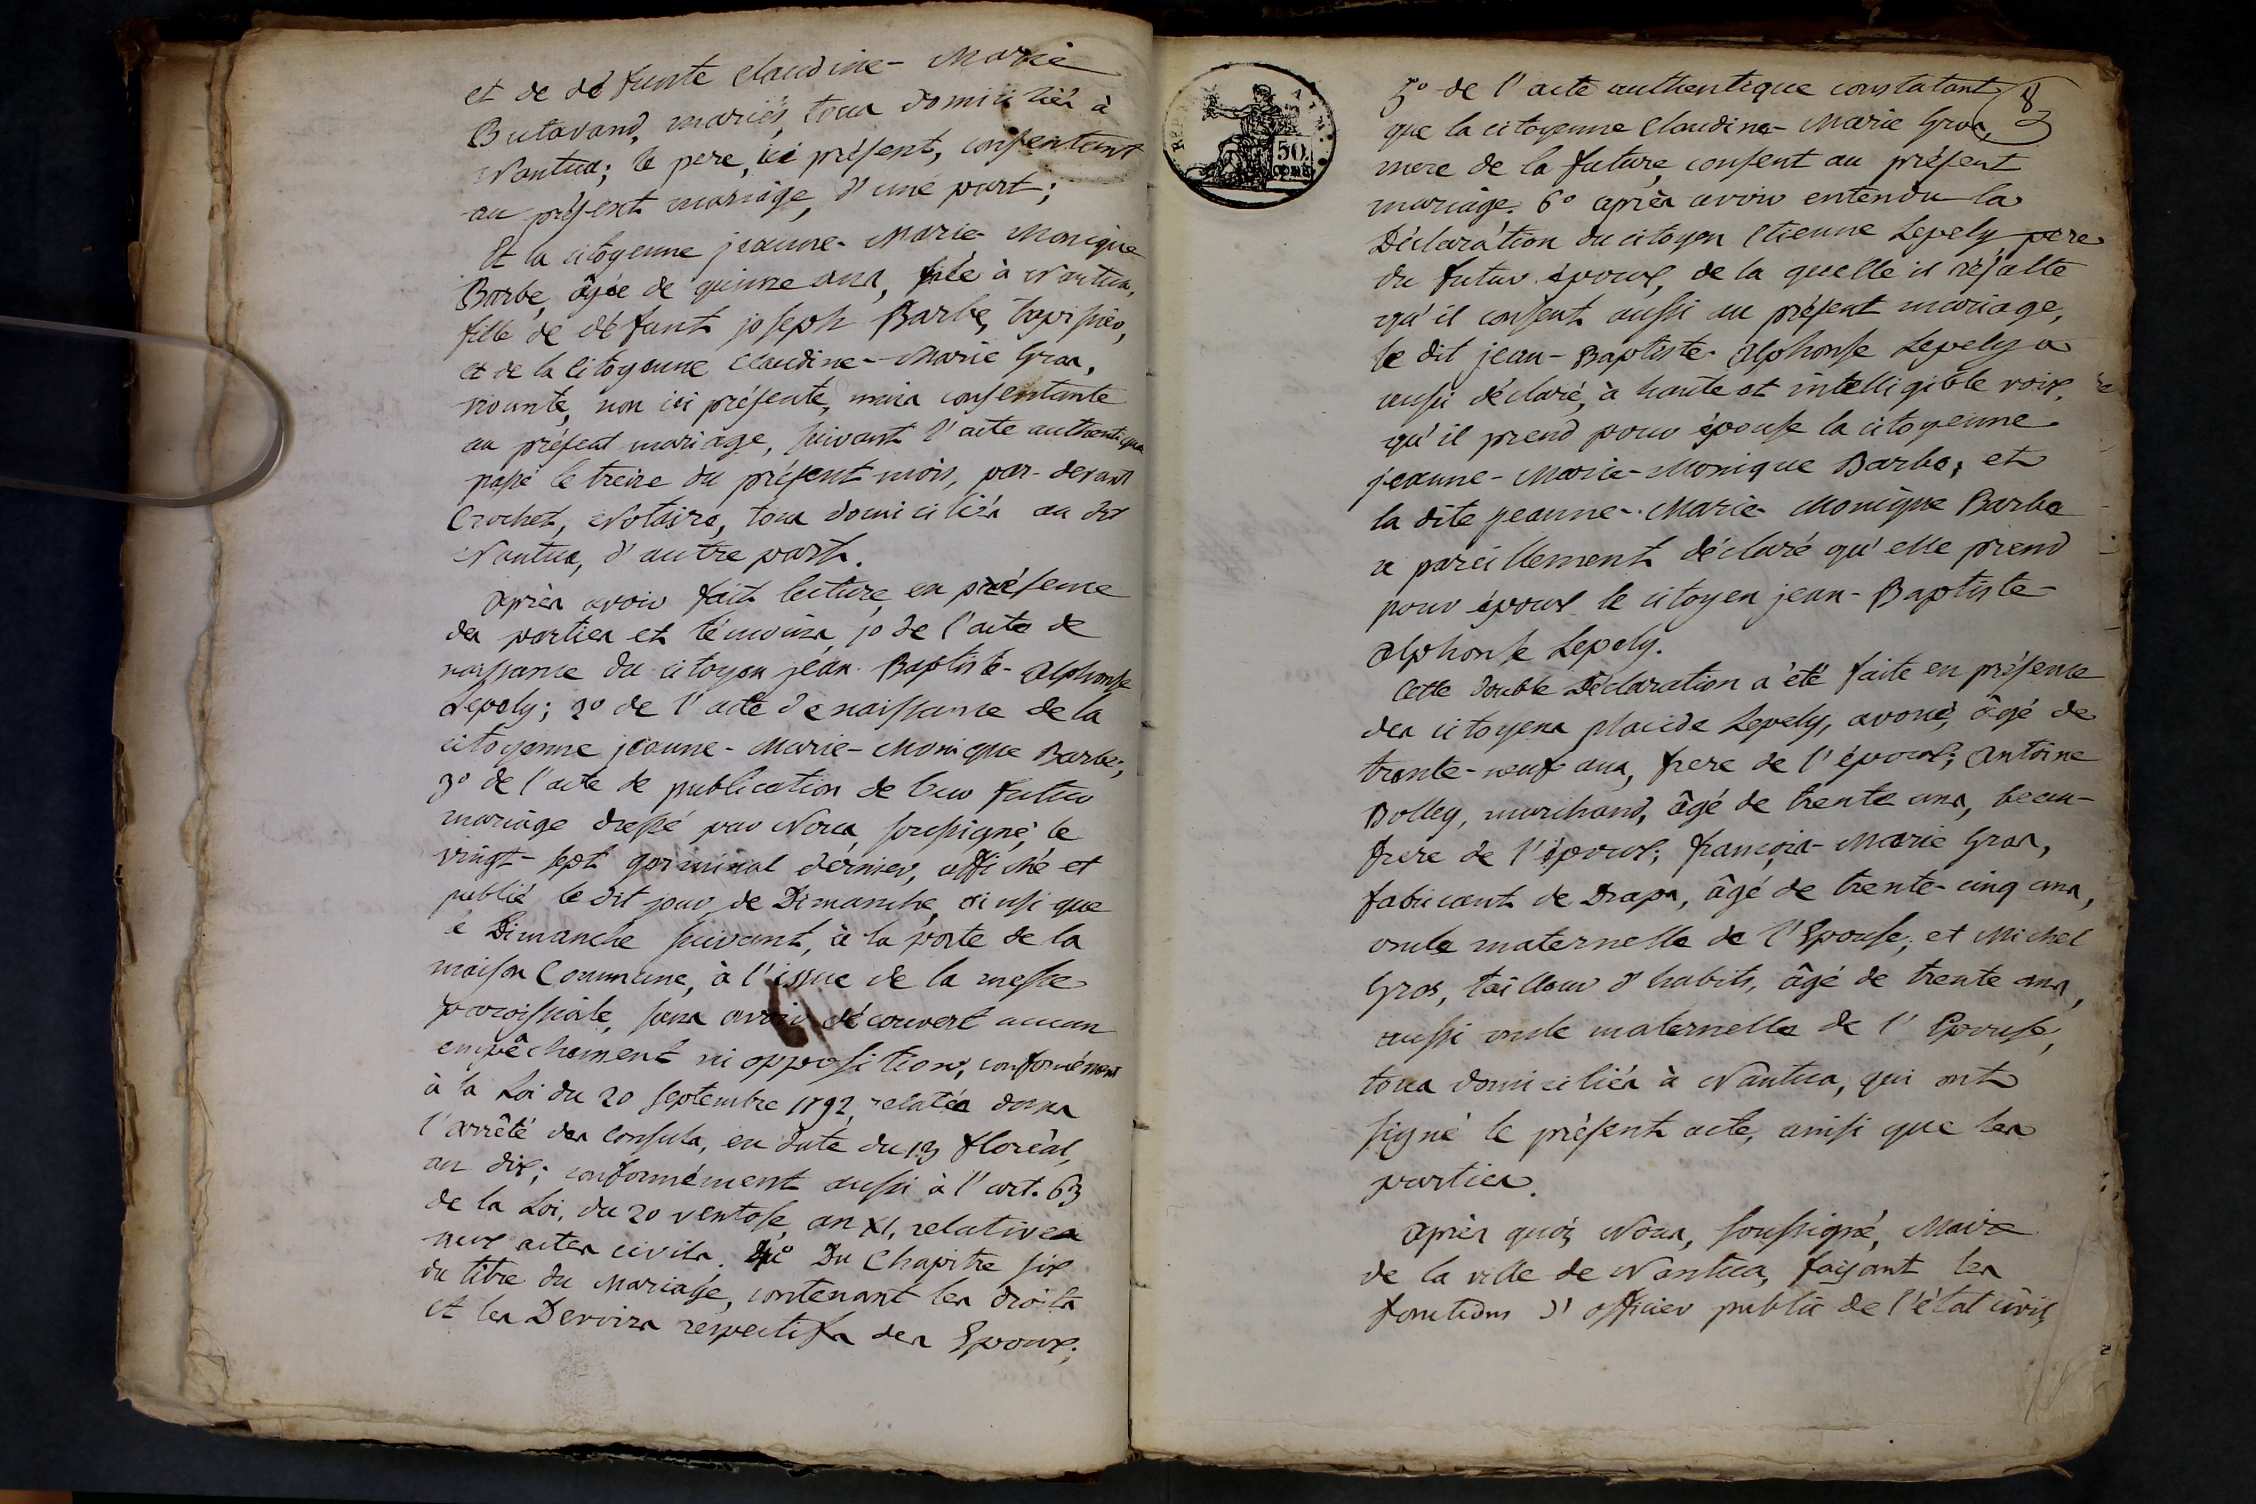 et de défunte Claudine-Marie
Butavand, mariés, tous domiciliés à
Nantua; le pere, ici présent, consentant
au présent mariage, d'une part;
Et la citoyenne jeanne-Marie-Monique
Barbe, âgée de quinze ans, née à Nantua,
fille de défunt joseph Barbe, tapissier,
et de la Citoyenne Claudine-Marie Gros,
vivante, non ici présente, mais consentante
au présent mariage, suivant l'acte authentique
passé le treize du présent mois, par-devant
Crochet, Notaire, tous domiciliés au dit
Nantua, d'autre part.
Après avoir fait lecture, en présence
des parties et témoins, 1º de l'acte de
naissance du citoyen jean-Baptiste-Alphonse
Levely; 2º de l'acte de naissance de la
citoyenne jeanne-Marie-Monique Barbe;
3º de l'acte de publication de leur futur
mariage dressé par Nous, soussigné, le
vingt-sept germinal dernier, affiché et
publié le dit jour de Dimanche, ainsi que
le Dimanche suivant, à la porte de la
maison Commune, à l'issue de la messe
paroissiale, sans avoir découvert aucun
empêchement ni opposition, conformément
à la Loi du 20 septembre 1792, relatée dans
l'arrêté des Consuls, en date du 13 floréal,
an dix; conformément aussi à l'art. 63
de la Loi, du 20 ventose, an XI, relative
aux actes civils. 4º Du Chapitre six
du titre du Mariage, contenant les droits
et les Devoirs respectifs des Epoux;
50
CENT.
8
5º de l'acte authentique constatant
que la citoyenne Claudine-Marie Gros,
mere de la future, consent au présent
mariage. 6º après avoir entendu la
Déclaration du citoyen Etienne Levely, pere
du futur époux, de la quelle il résulte
qu'il consent aussi au présent mariage,
le dit jean-Baptiste-Alphonse Levely a
aussi déclaré, à haute et intelligible voix,
qu'il prend pour épouse la citoyenne
jeanne-Marie-Monique Barbe, et
la dite jeanne-Marie-Monique Barbe
a pareillement déclaré qu'elle prend
pour époux le citoyen jean-Baptiste-
Alphonse Levely.
Cette double Déclaration a été faite en présence
des citoyens placide Levely, avoué, âgé de
trente-neuf ans, frere de l'époux; Antoine
Bolley, marchand, âgé de trente ans, beau-
frere de l'époux; françois-Marie Gros,
fabricant de Draps, âgé de trente-cinq ans,
oncle maternelle de l'Epouse; et Michel
Gros, tailleur d'habits, âgé de trente ans,
aussi oncle maternelle de l'Epouse,
tous domiciliés à Nantua, qui ont
signé le présent acte, ainsi que les
parties.
Après quoi, Nous, soussigné, Maire
de la ville de Nantua, faisant les
fonctions d'officier public de l'état civil,